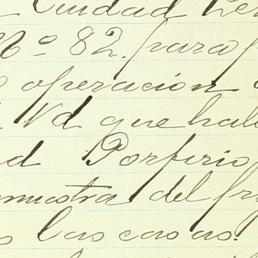 Ciudad
Nº 82. para
operacion
Vd que hall
d Porfirio
muestra del fr
las casas.